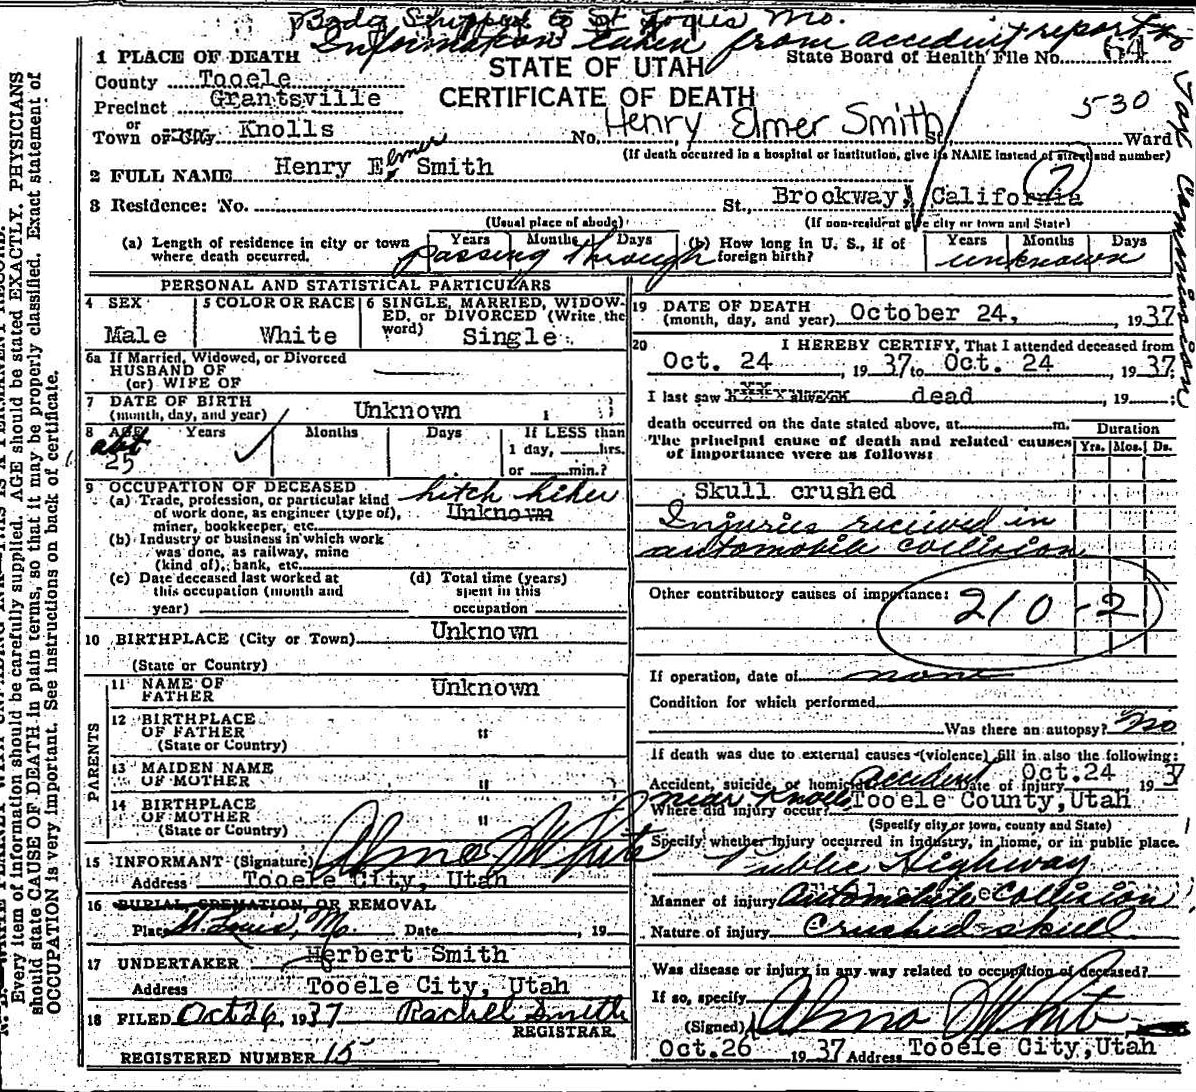 Body Shipped to St Louis Mo.
Information taken from accident report to
1 PLACE OF DEATH
STATE OF UTAH
State Board of Health File No. 64
County Tooele
Precinct Grantsville
CERTIFICATE OF DEATH
530
or
Town or City Knolls No. Henry Elmer Smith St., Ward
(If death occurred in a hospital or institution, give its NAME instead of street and number)
2 FULL NAME Henry E. Elmer Smith
7
3 Residence: No. St., Brookway, California
(Usual place of abode) (If non-resident give city or town and State)
(a) Length of residence in city or town where death occurred. Years Months Days passing through (b) How long in U. S., if of foreign birth? Years Months Days unknown
PERSONAL AND STATISTICAL PARTICULARS
4 SEX Male
5 COLOR OR RACE White
6 SINGLE, MARRIED, WIDOWED, or DIVORCED (Write the word) Single
6a If Married, Widowed, or Divorced
HUSBAND OF
(or) WIFE OF
7 DATE OF BIRTH
(month, day, and year) Unknown 1
8 AGE Years Months Days If LESS than
abt 25
1 day, hrs.
or min.?
9 OCCUPATION OF DECEASED
(a) Trade, profession, or particular kind of work done, as engineer (type of), miner, bookkeeper, etc. hitch hiker Unknown
(b) Industry or business in which work was done, as railway, mine (kind of), bank, etc.
(c) Date deceased last worked at this occupation (month and year)
(d) Total time (years) spent in this occupation
10 BIRTHPLACE (City or Town) Unknown
(State or Country)
PARENTS
11 NAME OF FATHER Unknown
12 BIRTHPLACE OF FATHER "
(State or Country)
13 MAIDEN NAME OF MOTHER "
14 BIRTHPLACE OF MOTHER "
(State or Country)
15 INFORMANT (Signature) Alma J White
Address Tooele City, Utah
16 BURIAL, CREMATION, OR REMOVAL
Place St. Louis, Mo. Date , 19
17 UNDERTAKER Herbert Smith
Address Tooele City, Utah
18 FILED Oct 26, 1937 Rachel Smith
REGISTRAR.
REGISTERED NUMBER 15
19 DATE OF DEATH
(month, day, and year) October 24, 1937
20 I HEREBY CERTIFY, That I attended deceased from
Oct. 24 , 1937 to Oct. 24 , 1937:
I last saw dead , 19 ;
death occurred on the date stated above, at m.
The principal cause of death and related causes of importance were as follows:
Duration
Yrs. Mos. Ds.
Skull crushed
Injuries received in
automobile collision
Other contributory causes of importance:
210-2
If operation, date of none
Condition for which performed
Was there an autopsy? No
If death was due to external causes (violence) fill in also the following:
Accident, suicide, or homicide Accident Date of injury Oct. 24 1937
Where did injury occur? near Knolls Tooele County, Utah
(Specify city or town, county and State)
Specify whether injury occurred in industry, in home, or in public place.
Public Highway
Manner of injury Automobile Collision
Nature of injury Crushed skull
Was disease or injury in any way related to occupation of deceased?
If so, specify
(Signed) Alma J White
Oct. 26 1937 Address Tooele City, Utah
Every item of information should be carefully supplied. AGE should be stated EXACTLY. PHYSICIANS
should state CAUSE OF DEATH in plain terms, so that it may be properly classified. Exact statement of
OCCUPATION is very important. See instructions on back of certificate.
Tax Commission